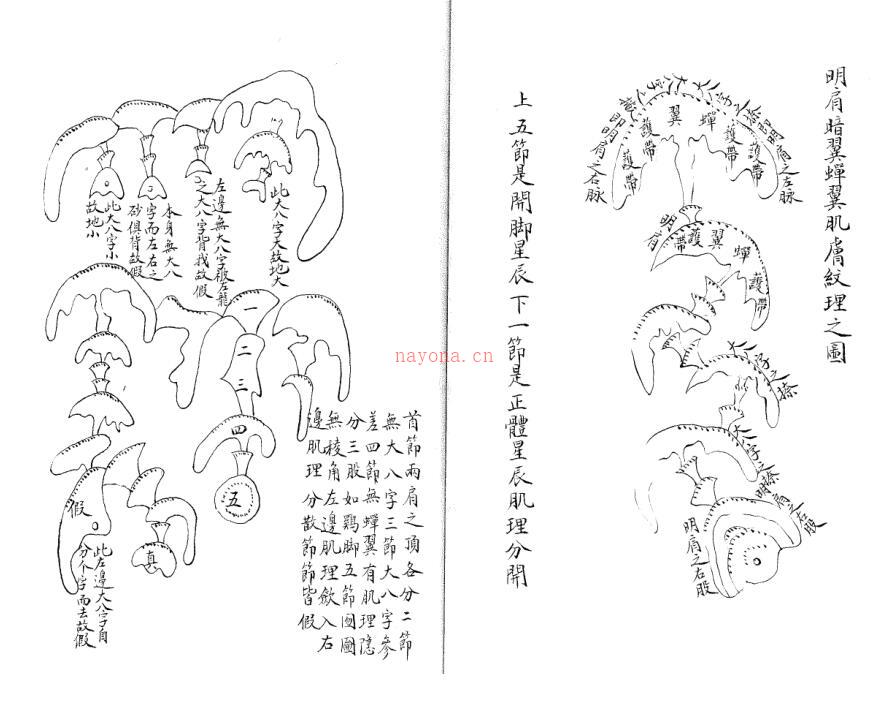 明肩暗翼蟬翼肌膚紋理之圖
大八字之捺即明肩之左脉
大八字之撇即明肩之右脉
蟬翼
護帶
護帶
護帶
護帶
明肩
蟬翼
護帶
護帶
八字之捺
大八字之捺
明肩之左股
明肩之右股
上五節是開脚星辰下一節是正體星辰肌理分開
此大八字大故地大
左邊無大八字被左龍
之大八字背我故假
本身無大八
字而左右之
砂俱背故假
此大八字小
故地小
一
二
三
四
五
首節兩肩之頂各分二節
無大八字三節大八字參
差四節無蟬翼有肌理隱
分三股如鷄脚五節圓圓
無棱角左邊肌理斂入右
邊肌理分散節節皆假
真
假
此左邊大八字自
分个字而去故假
nayona.cn